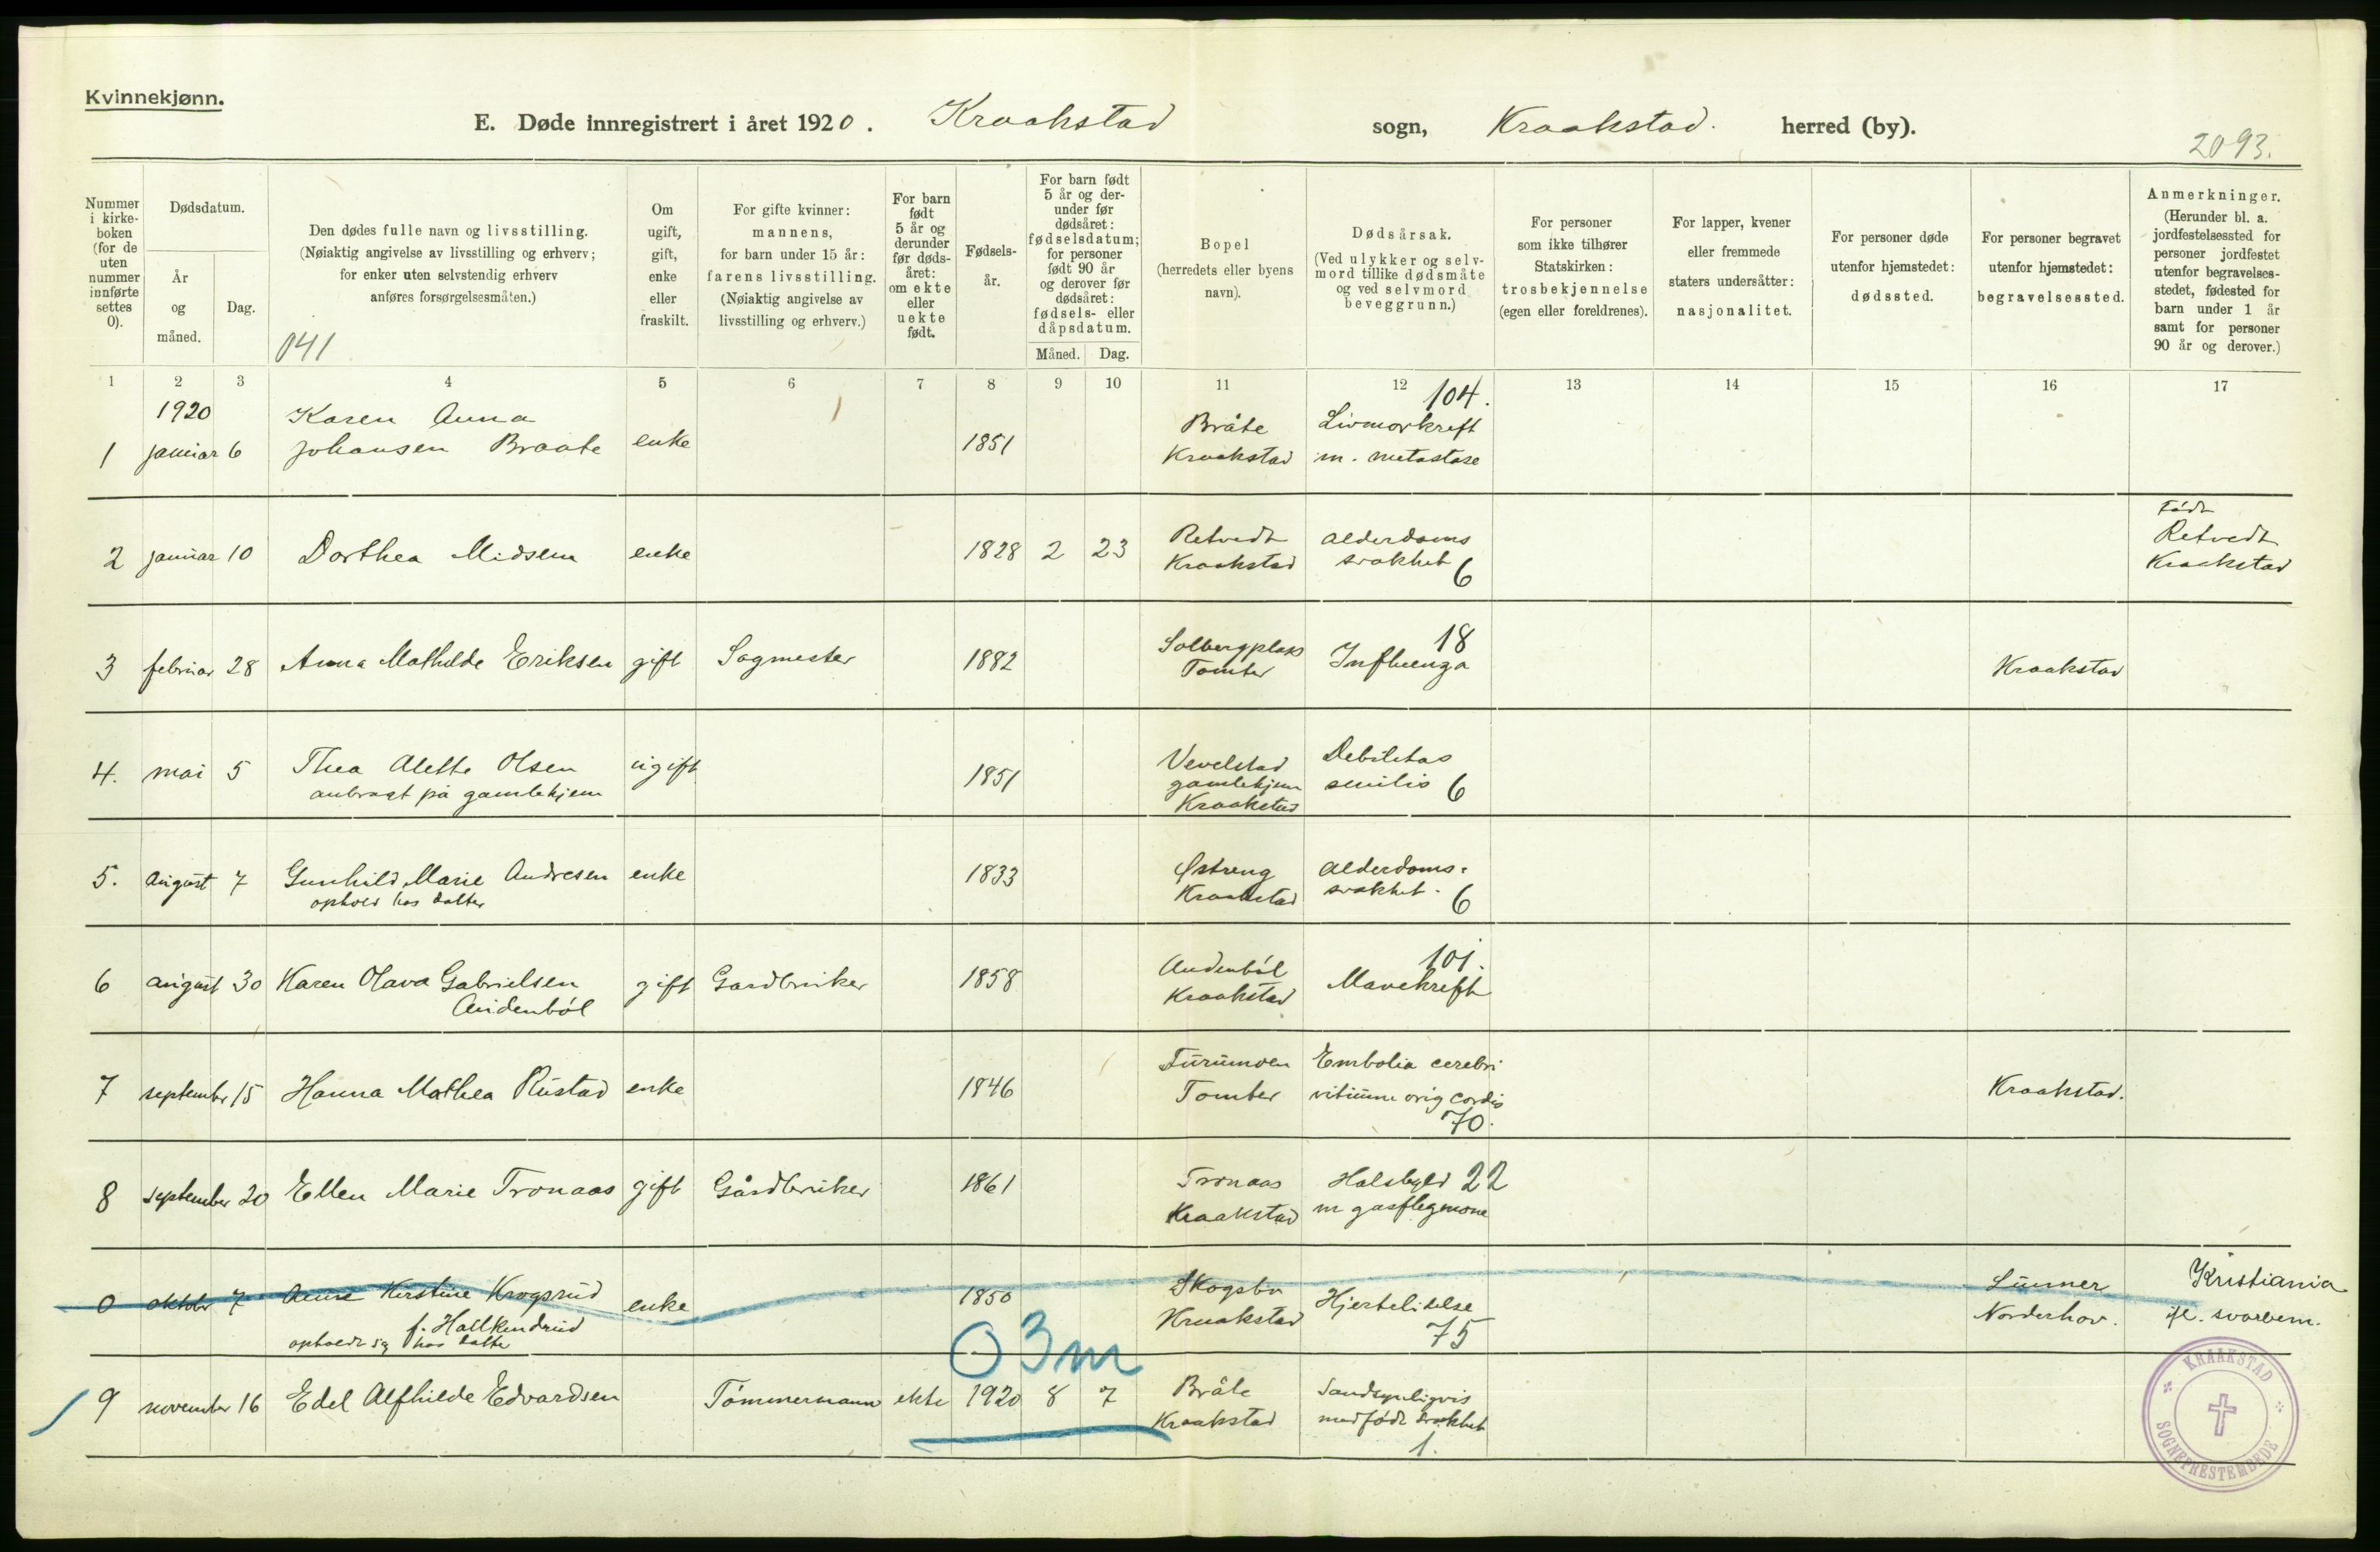 Kvinnekjønn.
E. Døde innregistrert i året 1920. Kraakstad sogn, Kraakstad. herred (by).
2093.
Nummer i kirke- boken (for de uten nummer innførte settes 0).
Dødsdatum.
År og måned.
Dag.
Den dødes fulle navn og livsstilling.
(Nøiaktig angivelse av livsstilling og erhverv;
for enker uten selvstendig erhverv
anføres forsørgelsesmåten.)
041
Om ugift, gift, enke eller fraskilt.
For gifte kvinner:
mannens,
for barn under 15 år:
farens livsstilling.
(Nøiaktig angivelse av
livsstilling og erhverv.)
For barn født 5 år og derunder før døds- året: om ekte eller uekte født.
Fødsels- år.
For barn født 5 år og der- under før dødsåret: fødselsdatum; for personer født 90 år og derover før dødsåret: fødsels- eller dåpsdatum.
Måned. Dag.
Bopel
(herredets eller byens
navn).
Dødsårsak.
(Ved ulykker og selv-
mord tillike dødsmåte
og ved selvmord
beveggrunn.)
For personer
som ikke tilhører
Statskirken:
trosbekjennelse
(egen eller foreldrenes).
For lapper, kvener
eller fremmede
staters undersåtter:
nasjonalitet.
For personer døde
utenfor hjemstedet:
dødssted.
For personer begravet
utenfor hjemstedet:
begravelsessted.
Anmerkninger.
(Herunder bl. a.
jordfestelsessted for
personer jordfestet
utenfor begravelses-
stedet, fødested for
barn under 1 år
samt for personer
90 år og derover.)
1 2 3 4 5 6 7 8 9 10 11 12 13 14 15 16 17
1920 Karen Anna Bråte Livmorkreft 104.
1 januar 6 Johansen Braate enke 1851 Kraakstad m. metastase
Født
2 januar 10 Dorthea Midsem enke 1828 2 23 Retvedt Alderdoms Retvedt
Kraakstad svakhet 6 Kraakstad
3 februar 28 Anna Mathilde Eriksen gift Sagmester 1882 Solbergplass Influenza 18 Kraakstad
Tomter
4. mai 5 Thea Alette Olsen ugift 1851 Vevelstad Debilitas
anbragt på gamlehjem gamlehjem senilis 6
Kraakstad
5. august 7 Gunhild Marie Andresen enke 1833 Østreng Alderdoms-
ophold hos datter Kraakstad svakhet. 6
6 august 30 Karen Olava Gabrielsen gift Gardbruker 1858 Audenböl Mavekreft 101.
Audenböl Kraakstad
7 september 15 Hanna Mathea Rustad enke 1846 Furumoen Embolia cerebri Kraakstad.
Tomter vitium orig cordis
70.
8 september 20 Ellen Marie Tronaas gift Gårdbruker 1861 Tronaas Halsbyld 22
Kraakstad m gasflegmone
0 oktober 7 Anne Kirstine Krogsrud enke 1850 Skogsbo Hjertelidelse Kristiania
f. Hallkendrud Kraakstad 75 Norderhov. ifl. svarbem.
opholdt sig hos datter
03m
9 november 16 Edel Alfhilde Edvardsen Tömmermann ekte 1920 8 7 Bråte Sandsynligvis
Kraakstad medfødt svakhet
1.
KRAAKSTAD
SOGNEPRESTEMBEDE